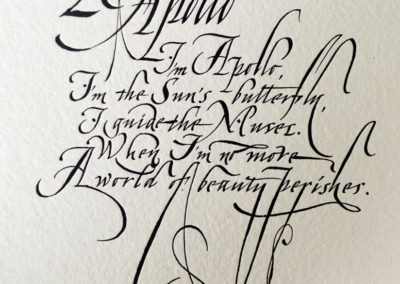 Apollo
I'm Apollo,
I'm the Sun's butterfly,
I guide the Muses.
When I'm no more
A world of beauty perishes.